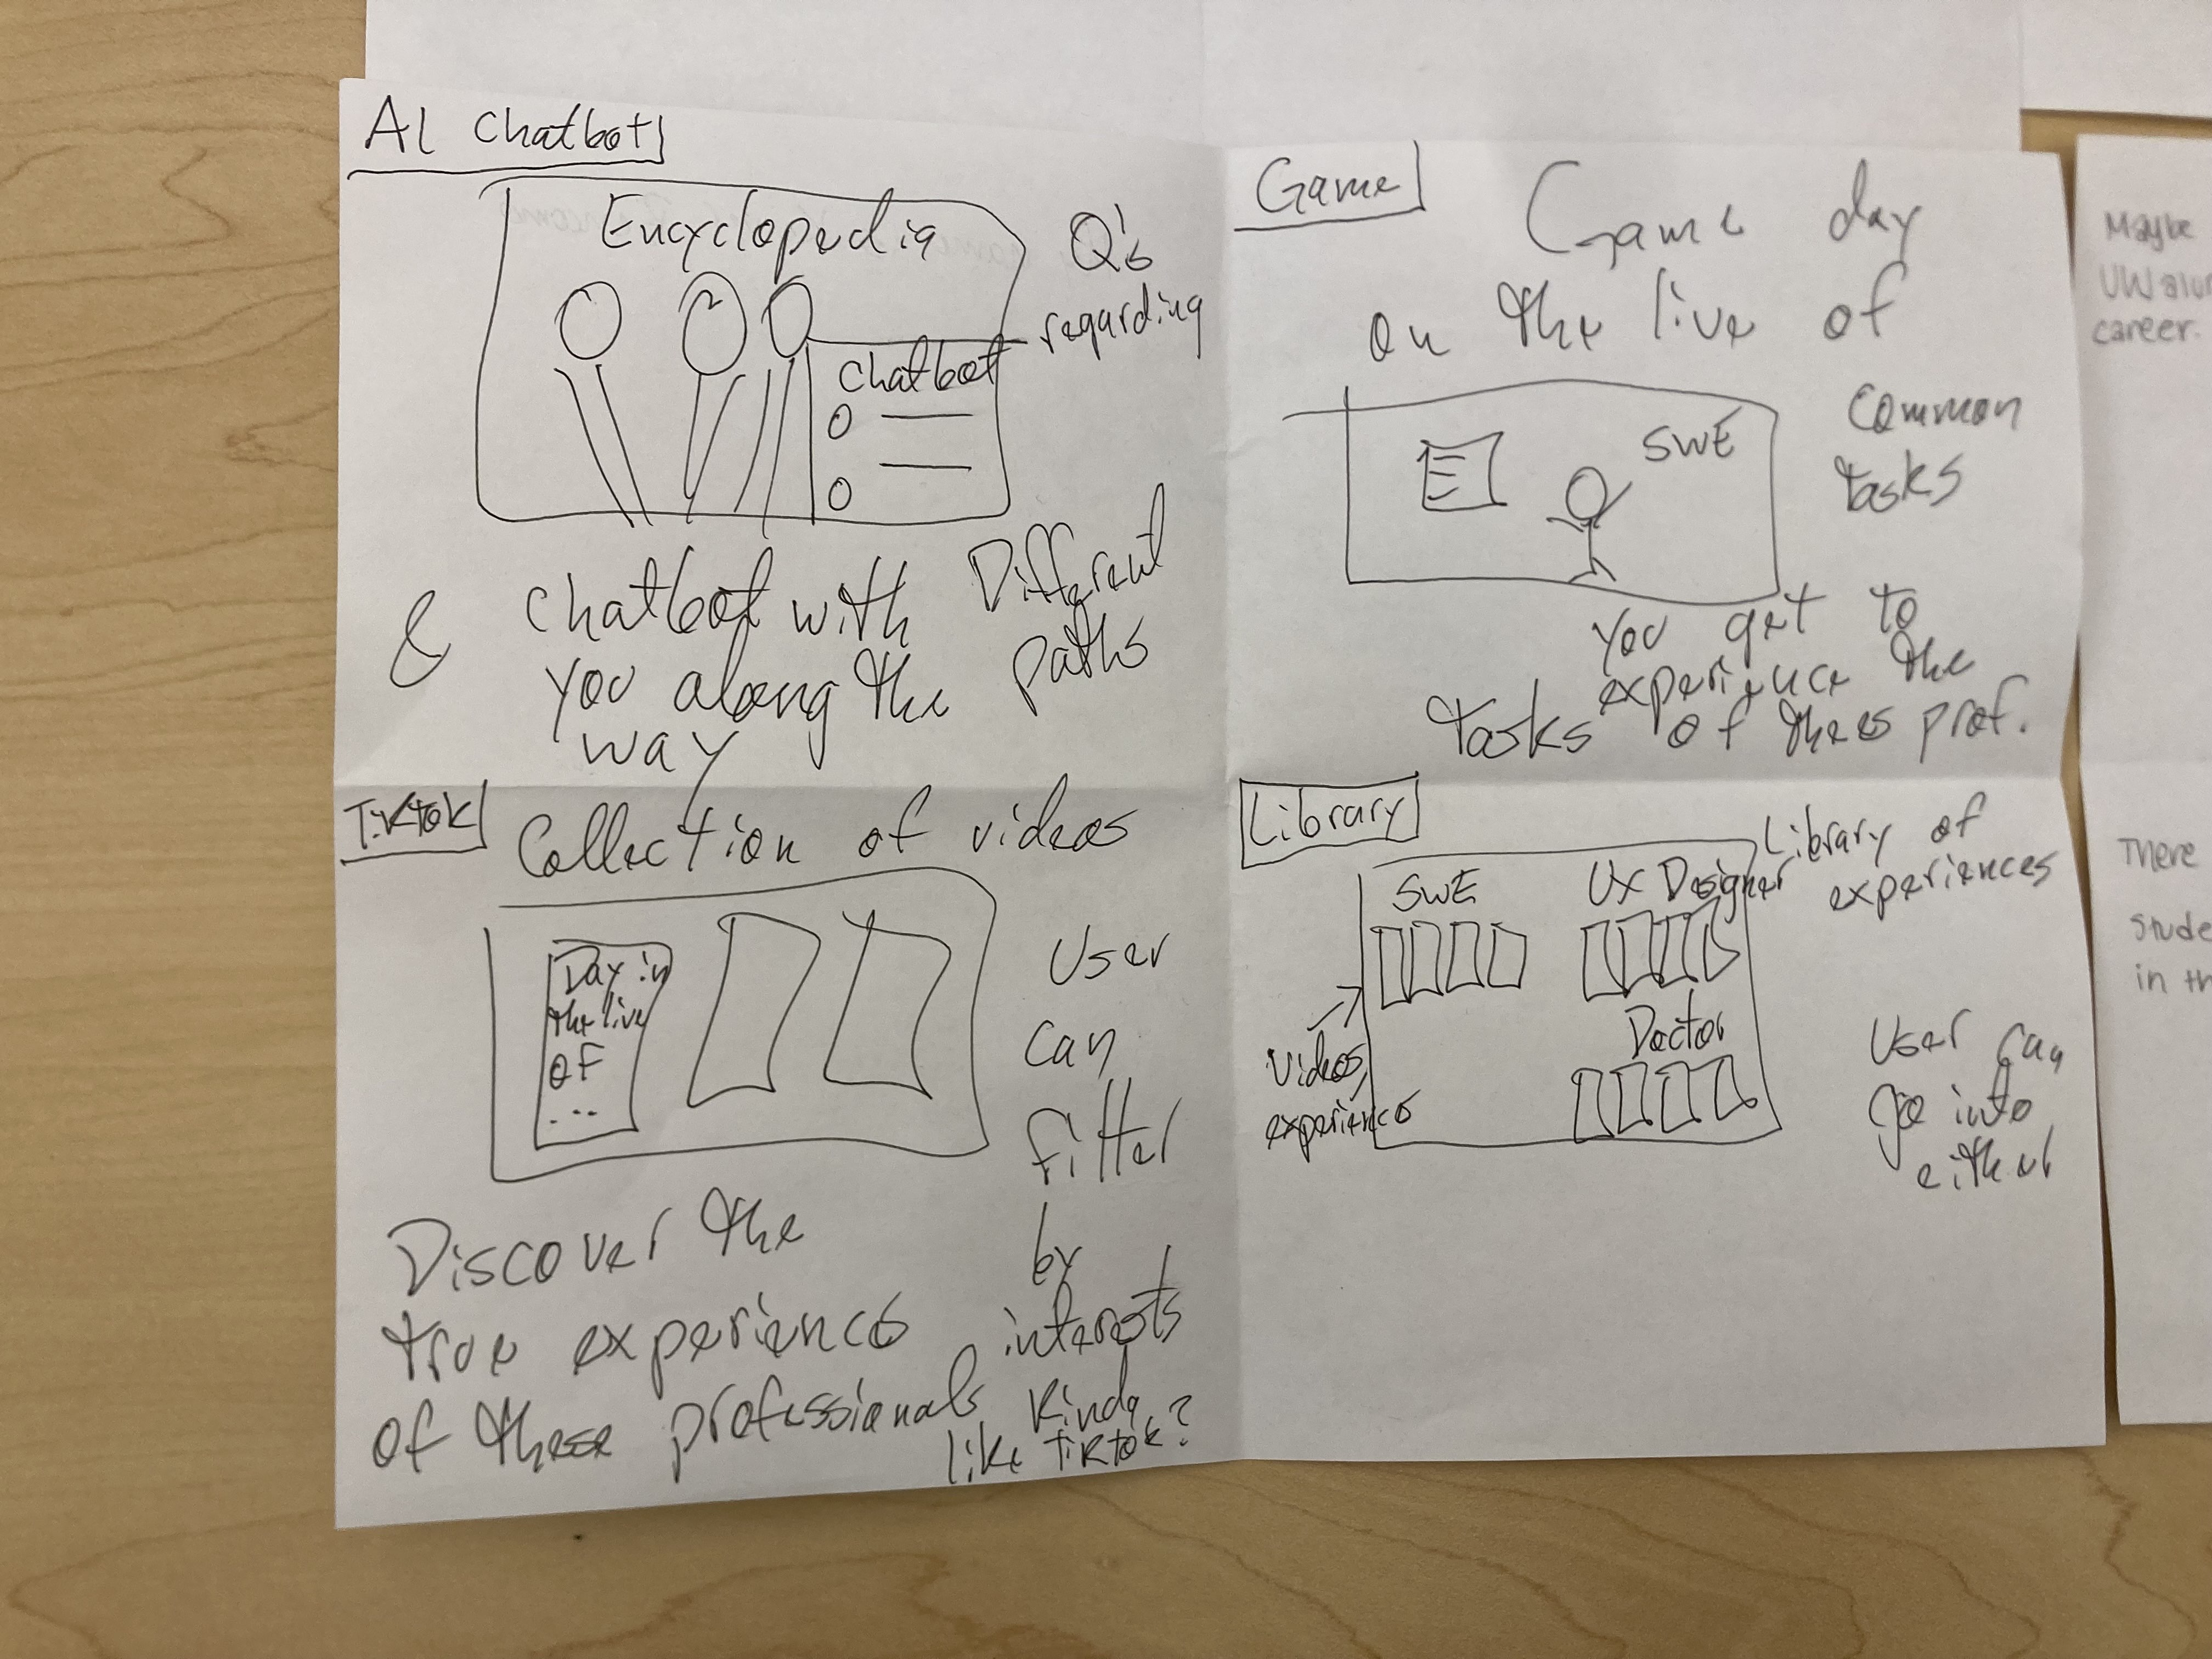 AI Chatbot
Encyclopedia
Chatbot
Q's
regarding
Different
paths
& Chatbot with
you along the
way
Game
Game day
on the live of
SWE
Common
tasks
You get to
experience the
tasks of thees prof.
Tiktok
Collection of videos
Day in
the live
of
...
User
can
filter
by
interests
Kinda
like tiktok?
Discover the
true experiences
of these professionals
Library
Library of
experiences
SWE
UX Designer
Doctor
Videos,
experiences
User can
go into
either
Maybe
UW
career.
There
in